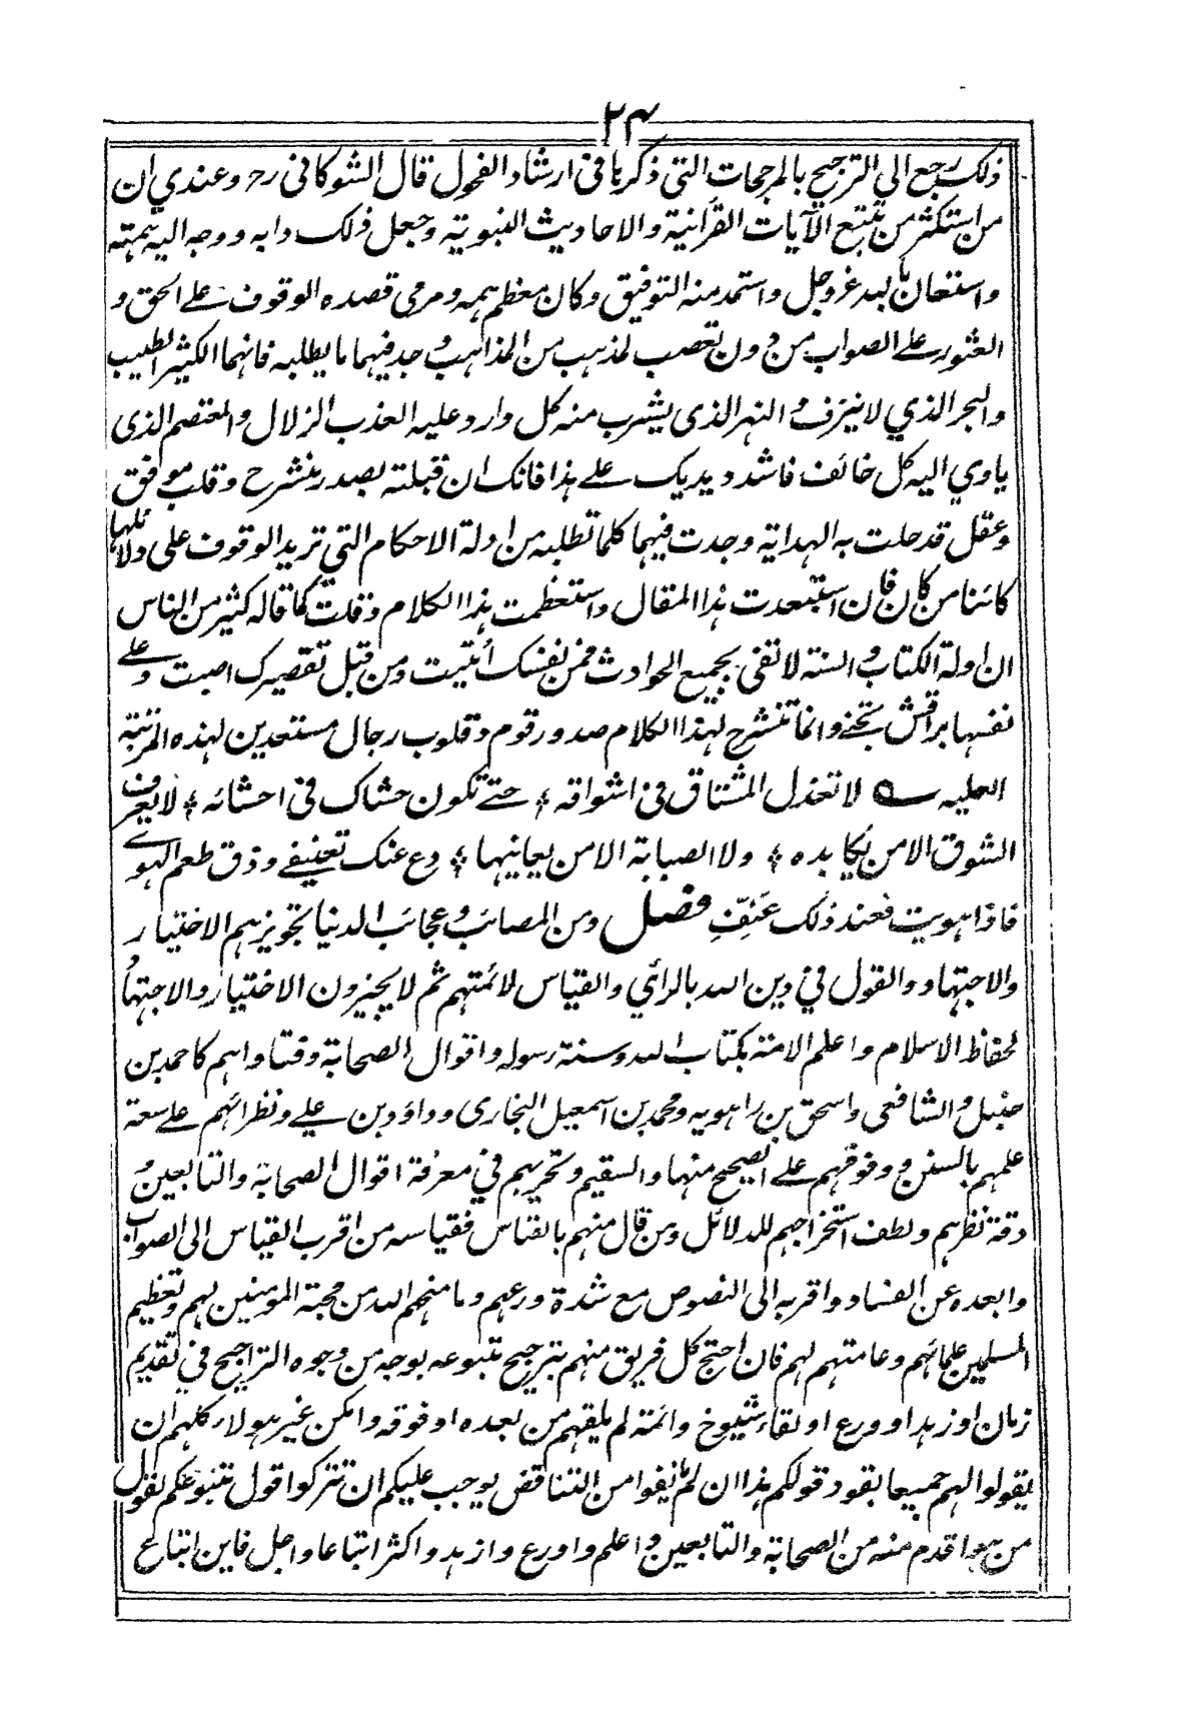 ٢٣
ذلك رجع الى الترجيح بالمرجحات التى ذكرها فى ارشاد الفحول قال الشوكانى رح وعندي ان
من استكثر من تتبع الآيات القرآنية والاحاديث النبوية وجعل ذلك دابه ووجه اليه همته
واستعان بالله عزوجل واستمد منه التوفيق وكان معظم همه ومرمى قصده الوقوف على الحق و
العثور على الصواب من دون تعصب لمذهب من المذاهب وجد فيهما ما يطلبه فانهما الكثير الطيب
والبحر الذي لا ينزف والنهر الذى يشرب منه كل وارد عليه العذب الزلال والمعتصم الذى
ياوي اليه كل خائف فاشدد يديك على هذا فانك ان قبلته بصدر منشرح وقلب موفق
وعقل قد حلت به الهداية وجدت فيهما كلما تطلبه من ادلة الاحكام التي تريد الوقوف على دلائلها
كائنا من كان فان استبعدت هذا المقال واستعظمت هذا الكلام وقلت كما قاله كثير من الناس
ان ادلة الكتاب والسنة لا تفى بجميع الحوادث فمن نفسك أتيت ومن قبل تقصيرك اصبت وعلى
نفسها براقش تجني وانما تنشرح لهذا الكلام صدور قوم وقلوب رجال مستعدين لهذه المرتبة
العلية ـه لا تعذل المشتاق فى اشواقه ؛ حتى تكون حشاك فى احشائه ؛ لا يعرف
الشوق الا من يكابده ؛ ولا الصبابة الا من يعانيها ؛ دع عنك تعنيفي وذق طعم الهوى
فاذا هويت فعند ذلك عَنِّفِ فصل ومن المصائب وعجائب الدنيا تجويزهم الاختيار
والاجتهاد والقول في دين الله بالرأي والقياس لائمتهم ثم لا يجيزون الاختيار والاجتهاد
لحفاظ الاسلام واعلم الامة بكتاب الله وسنة رسوله واقوال الصحابة وفتاواهم كاحمد بن
حنبل والشافعى واسحق بن راهويه ومحمد بن اسمعيل البخارى وداؤد بن علي ونظرائهم على سعة
علمهم بالسنن ووقوفهم على الصحيح منها والسقيم وتحريهم في معرفة اقوال الصحابة والتابعين و
دقة نظرهم ولطف استخراجهم للدلائل ومن قال منهم بالقياس فقياسه من اقرب القياس الى الصواب
وابعده عن الفساد واقربه الى النصوص مع شدة ورعهم وما منحهم الله من محبة المؤمنين لهم وتعظيم
المسلمين علمائهم وعامتهم لهم فان احتج كل فريق منهم بترجيح متبوعه بوجه من وجوه التراجيح في تقديم
زمان او زهد او ورع او لقاء شيوخ وائمة لم يلقهم من بعده او فوقه وامكن غير هولاء كلهم ان
يقولوا لهم جميعا بقود قولكم هذا ان لم تانفوا من التناقض يوجب عليكم ان تتركوا قول متبوعكم لقول
من هو اقدم منه من الصحابة والتابعين واعلم واورع وازهد واكثر اتباعا واجل فاين اتباع